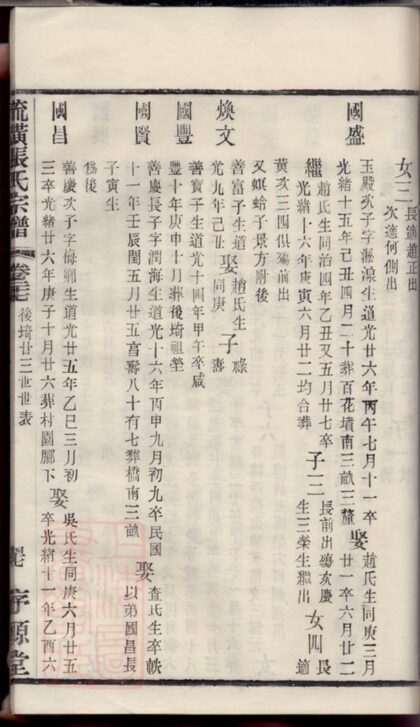 女三
長適趙正出
次適何側出
國盛
玉殿次子字
生道光廿六年丙午七月十一卒
光緒十五年己丑四月二十葬百花墳南三畝三釐
娶
趙氏生同庚三月
廿一卒六月廿二
繼
趙氏生同治四年乙丑又五月廿七卒
光緒十六年庚寅六月廿二均合葬
子三
長前出殤次慶
生三榮生繼出
女四
長適
黄次三四俱殤前出
又螟蛤子景方附後
煥文
善富子生道
光九年己丑
娶
趙氏生
同庚
子
祿
壽
國豐
善寶子生道光十四年甲午卒咸
豐十年庚申十月葬後埼祖塋
國賢
善慶長子字潤海生道光十六年丙申九月初九卒民國
十一年壬辰閏五月廿五富壽八十有七葬橋南三畝
娶
査氏生卒軼
以弟國昌長
子寅生
爲後
國昌
善慶次子字梅
生道光廿五年乙巳三月初
三卒光緒廿六年庚子十月廿六葬村園腳下
娶
吳氏生同庚六月廿五
卒光緒十一年乙酉六
張氏宗譜
卷
後埼廿三世世表
序源堂